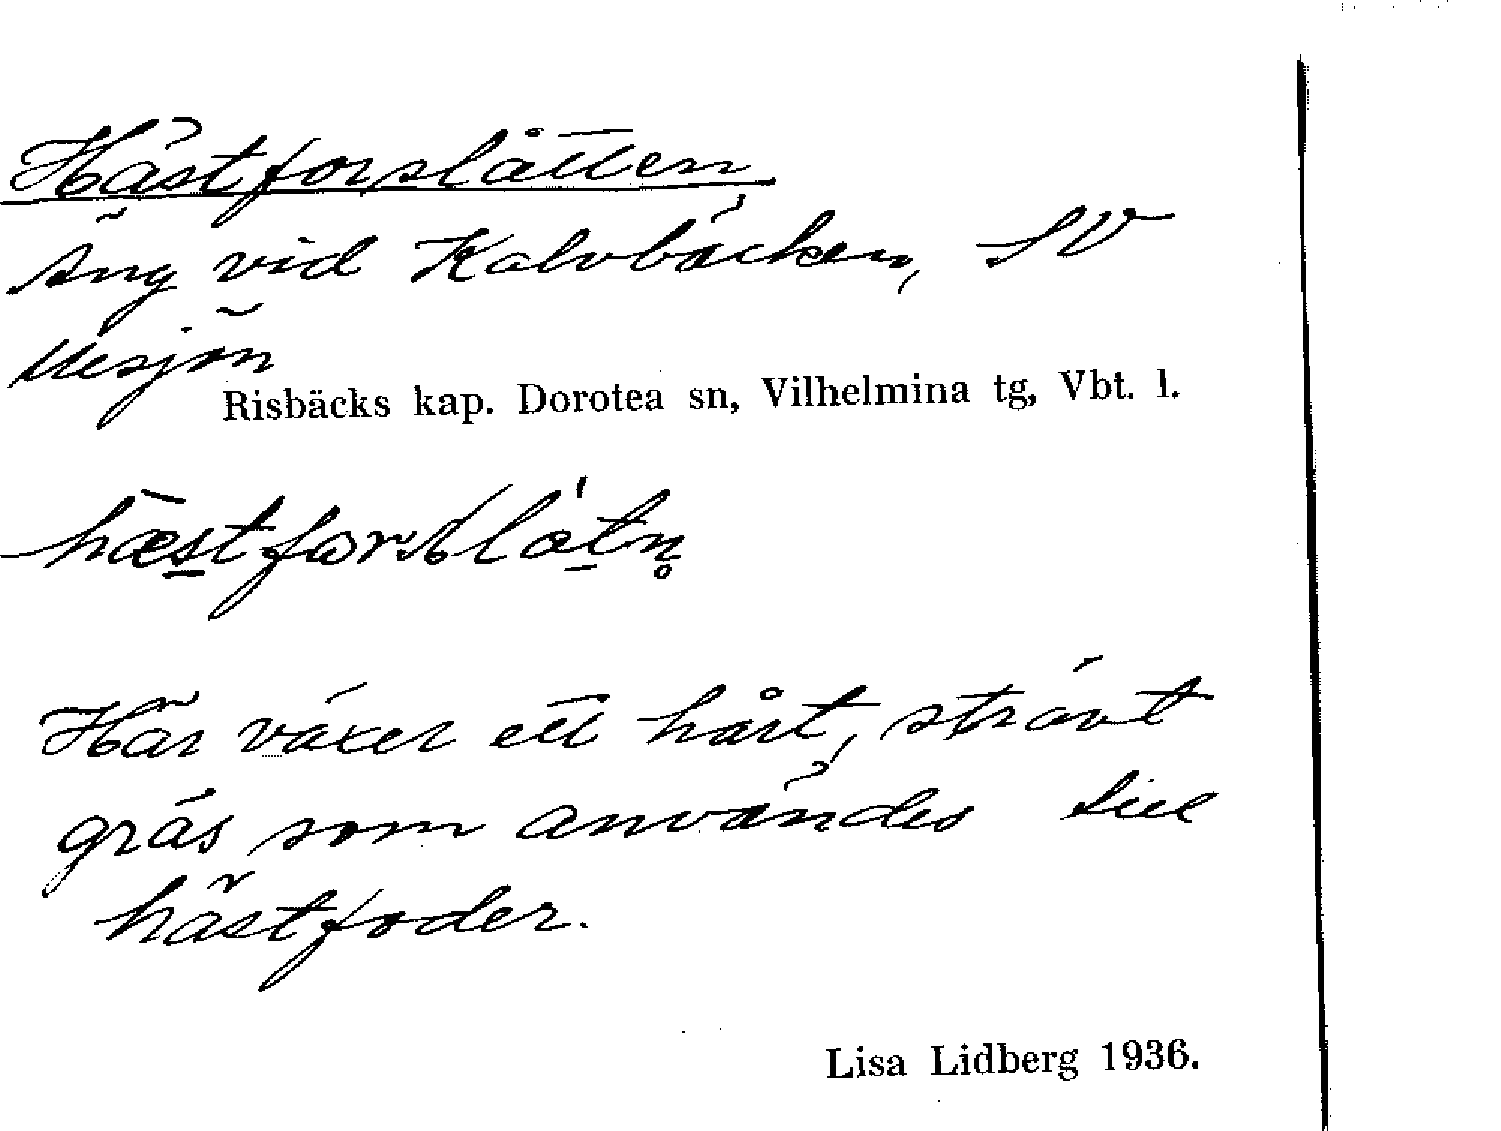 Hästforslåtten
Äng vid Kalvbäcken, SV
Mesjön
Risbäcks kap. Dorotea sn, Vilhelmina tg, Vbt. l.
Här växer ett hårt, strävt
gräs som användes till
hästfoder.
Lisa Lidberg 1936.